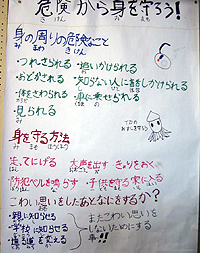 危険から身を守ろう!
身の周りの危険なこと
・つれさられる ・追いかけられる
・おどかされる ・知らない人に話しかけられる
・体をさわられる ・車に乗せられる
・見られる
身を守る方法
走ってにげる 大声を出す きょりをおく
防犯ベルを鳴らす 子供を守る家に入る
こわい思いをしたあとなにをするか?
・親に知らせる
・学校に知らせる
・通る道を変える
またこわい思いを
しないためにする
事!!